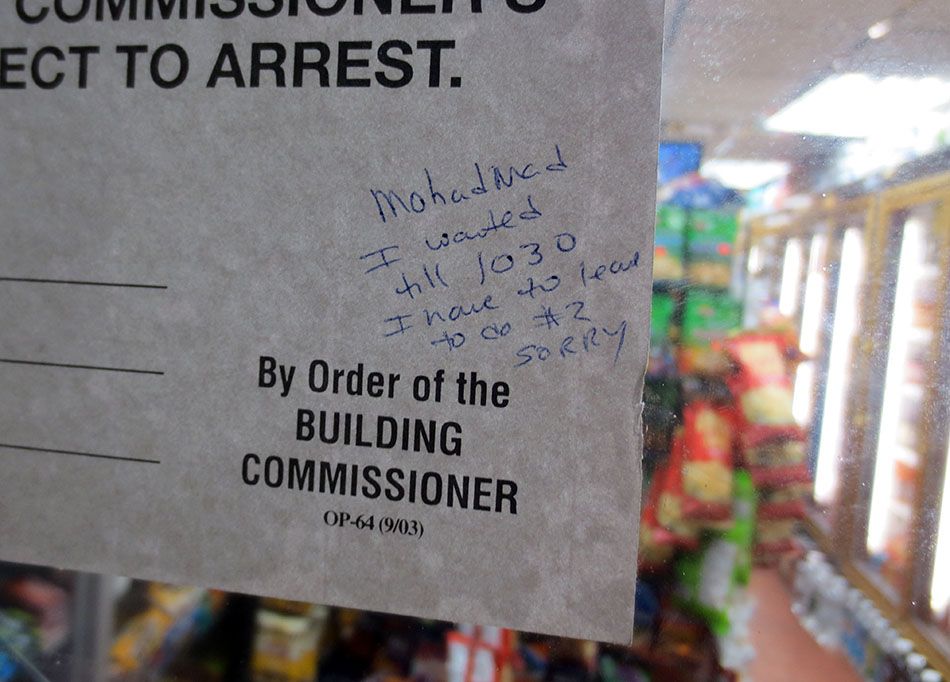 COMMISSIONER'S
ECT TO ARREST.
MohadMad
I waited
till 1030
I have to leave
to do #2
SORRY
By Order of the
BUILDING
COMMISSIONER
OP-64 (9/03)